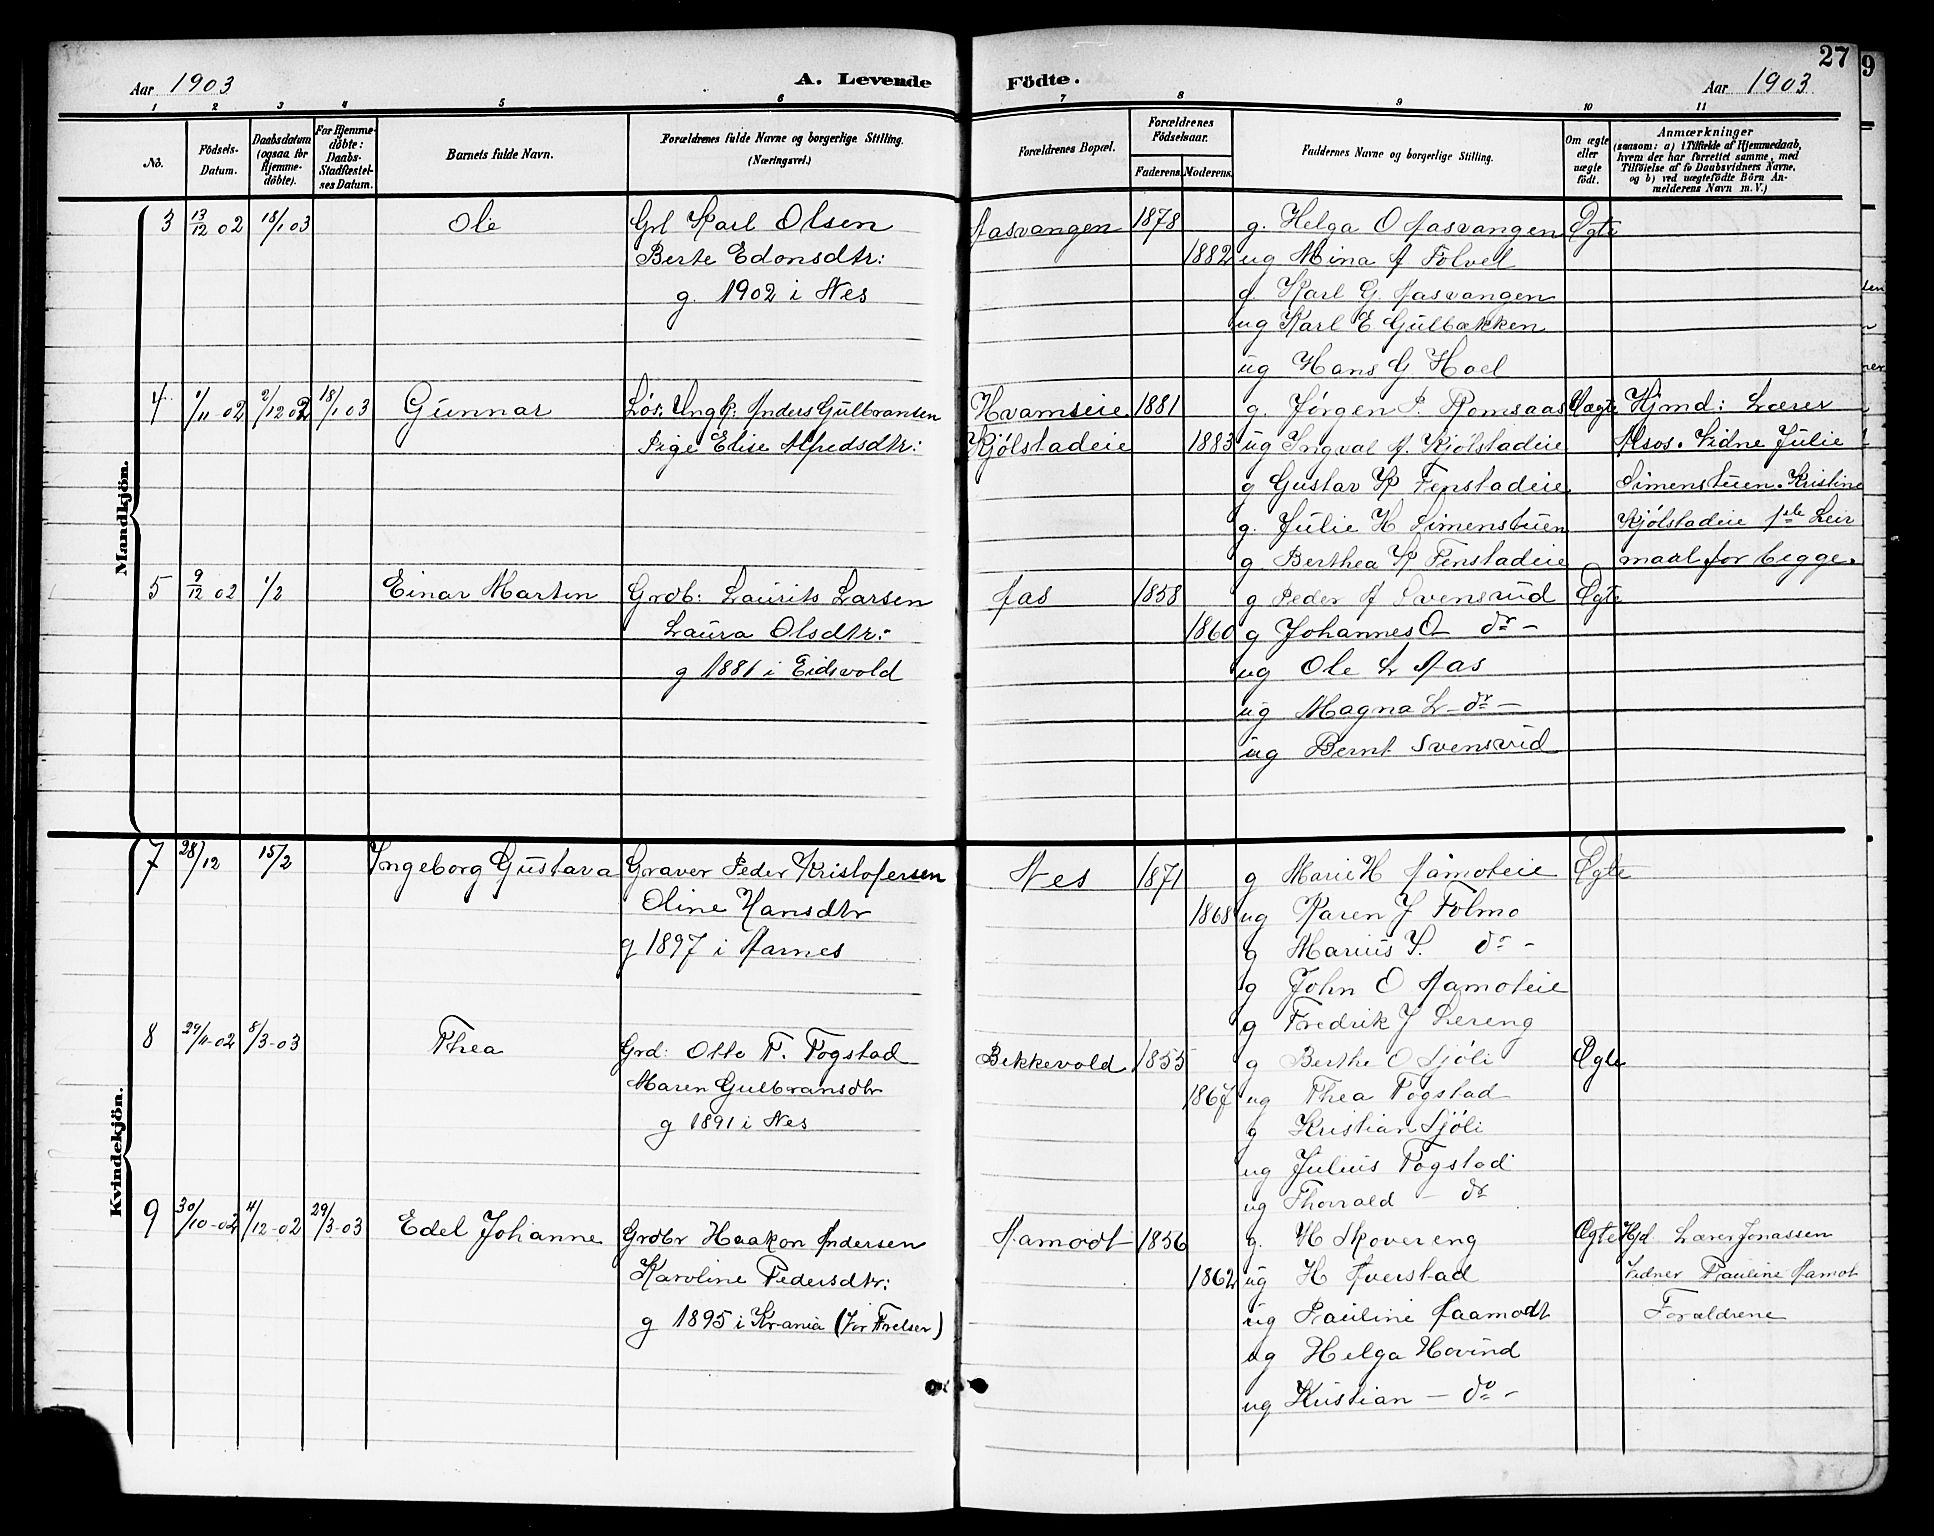 27
9
Aar 1903
A. Levende
Födte.
Aar 1903
1 2 3 4 5 6 7 8 9 10 11
No.
Födsels-Datum.
Daabsdatum (ogsaa for Hjemme-döbte).
For Hjemme-döbte: Daabs-Stadfæstel-ses Datum.
Barnets fulde Navn.
Forældrenes fulde Navne og borgerlige Stilling. (Næringsvei.)
Forældrenes Bopæl.
Forældrenes Födselsaar.
Faderens. Moderens.
Faddernes Navne og borgerlige Stilling.
Om ægte eller uægte födt.
Anmærkninger
(saasom: a) i Tilfælde af Hjemmedaab, hvem der har forrettet samme, med Tilföielse af to Daabsvidners Navne, og b) ved uægtefödte Börn An-melderens Navn m. V.)
Mandkjön.
3 13/12 02 18/1 03 Ole Grl Karl Olsen Aasvangen 1878 g. Helga O Aasvangen Ægte
Berte Edonsdtr: 1882 ug Mina A Folvel
g. 1902 i Nes g. Karl G. Aasvangen
ug Karl E Gulbækken
ug Hans G Hoel
4 1/11 02 2/12 02 18/1 03 Gunnar Løs: Ungk. Anders Gulbransen Hvamseie 1881 g. Jørgen P. Romsaas Uægte Hjmd: Lærer
Pige Elise Alfredsdtr: Kjølstadeie 1883 ug Ingval A. Kjølstadeie Alsos. Vidne Julie
g Gustav K Fenstadeie Simenstuen. Kristine
g. Julie H Simenstuen Kjølstadeie 1ste Leir
g Berthea K Fenstadeie maal for begge.
5 9/12 02 1/2 Einar Martin Grdb: Laurits Larsen Aas 1858 g Peder A Svensrud Ægte
Laura Olsdtr: 1860 g Johannes O do -
g 1881 i Eidsvold ug Ole L Aas
ug Magna L - do -
ug Bernt Svensrud
Kvindekjön.
7 28/12 15/2 Ingeborg Gustava Graver Peder Kristofersen Nes 1871 g Marie H Aamoteie Ægte
Oline Hansdtr 1868 ug Karen J Folmo
g 1897 i Aarnes g Marius S. do -
g John O Aamoteie
g Fredrik J Lereng
8 29/11-02 8/3-03 Thea Grd: Otto F. Fogstad Bekkevold 1855 g Berthe O Sjøli Ægte
Maren Gulbransdtr 1867 ug Thea Fogstad
g 1891 i Nes g Kristian Sjøli
ug Julius Fogstad
ug Thorvald - do
9 30/10-02 4/12-02 29/3-03 Edel Johanne Grdbr Haakon Andersen Aamodt 1856 g. H Skovereng Ægte Hjd Lærer Jonassen
Karoline Pedersdtr: 1862 ug H Averstad Vidner Pauline Aamot
g 1895 i Kr.ania (Vor Frelser) ug Pauline Aaamodt Forældrene
ug Helga Hovind
ug Kristian - do -